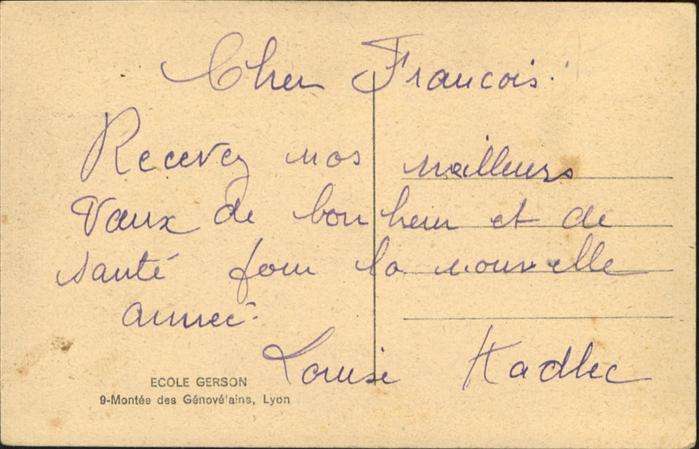 Cher Francois.
Recevez nos meilleurs
Vœux de bonheur et de
santé pour la nouvelle
année.
Louise Hadlec
ECOLE GERSON
9-Montée des Génovéfains, Lyon